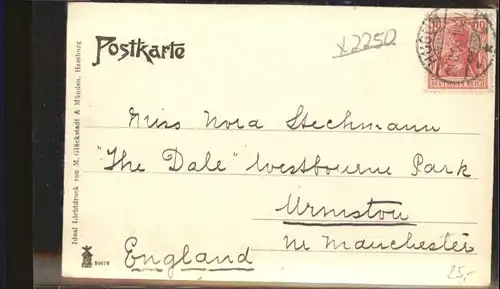 Postkarte
x2250
10 10
DEUTSCHES REICH
Miss Nora Stechmann
"The Dale" Westbourne Park
Urmston
nr Manchester
England
25,-
Ideal Lichtdruck von M. Glückstadt & Münden, Hamburg